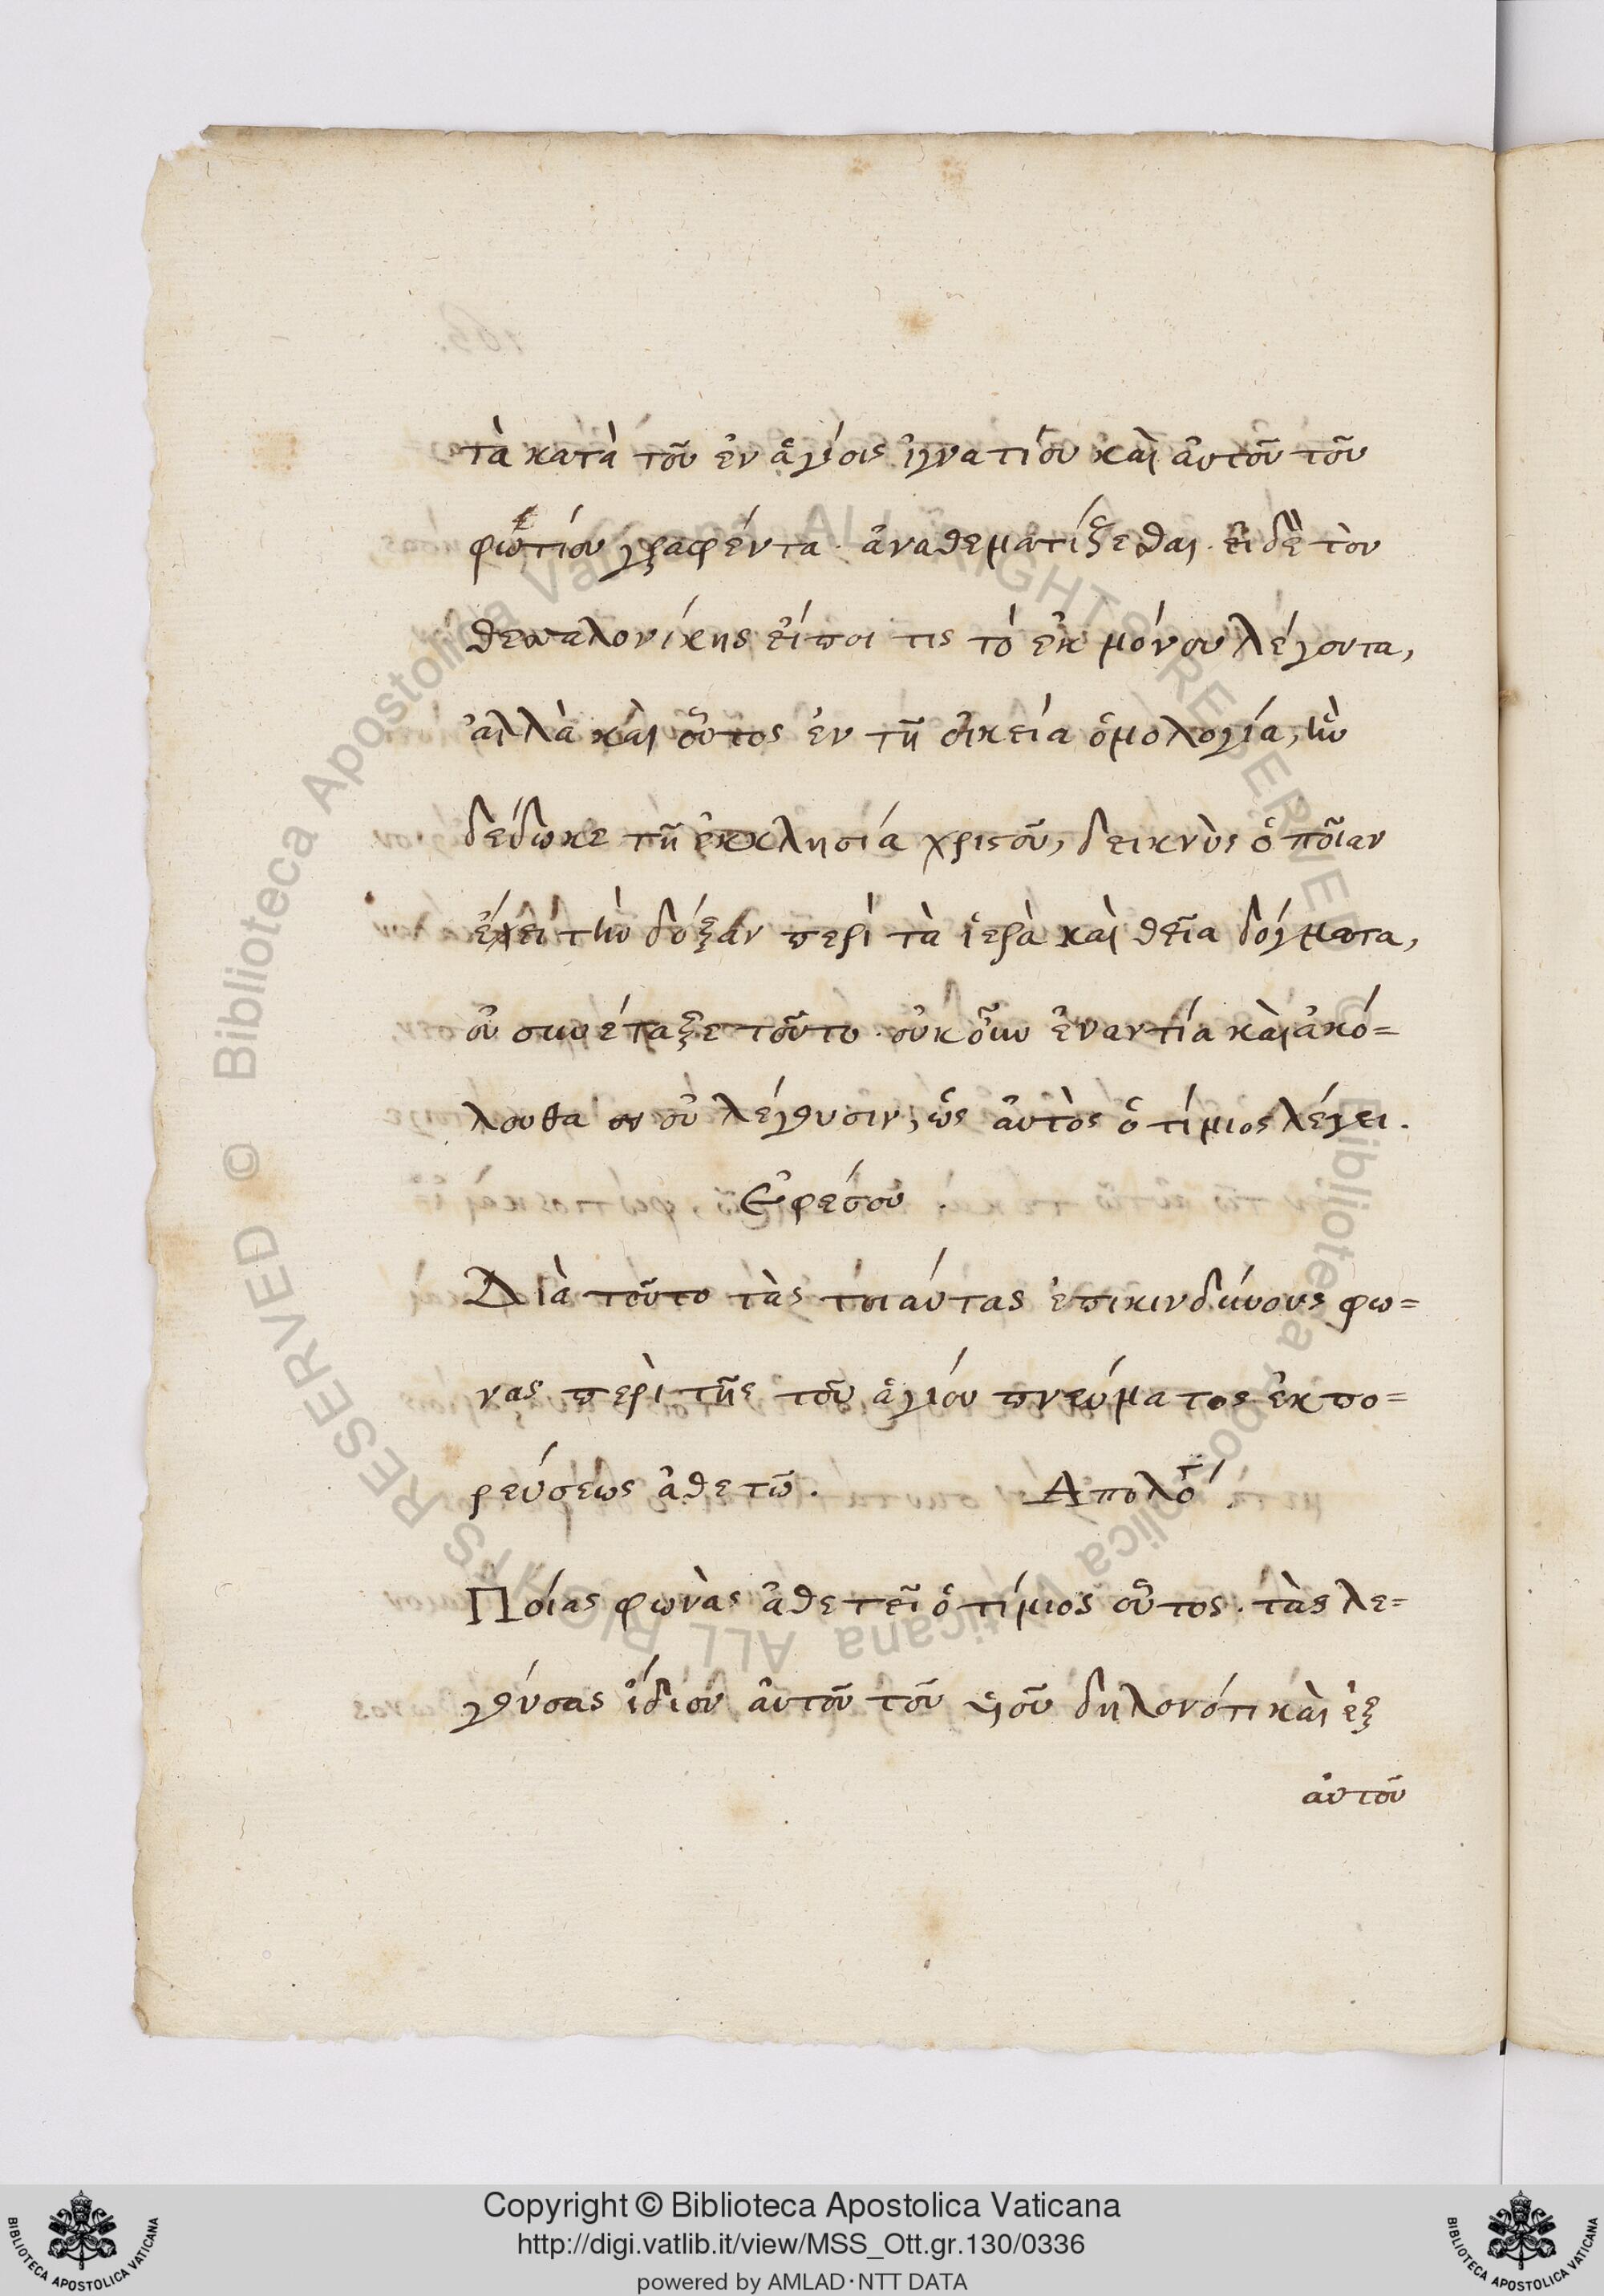 τὰ κατὰ τοῦ ἐν ἁγίοις ἰγνατίου καὶ αὐτοῦ τοῦ
φωτίου γραφέντα· ἀναθεματίζεσθαι· εἰ δὲ τὸν
θεσσαλονίκης εἴποι τις τὸ ἐκ μόνου λέγοντα,
ἀλλὰ καὶ οὗτος ἐν τῆ οἰκεία ὁμολογία, ἣν
δέδωκε τῆ ἐκκλησία χριστοῦ, δεικνὺς ὁποῖαν
ἔχει τὴν δόξαν περὶ τὰ ἱερὰ καὶ θεῖα δόγματα,
οὐ συνέταξε τοῦτο· οὐκοῦν ἐναντία καὶ ἀκό=
λουθα οὐ λέγουσιν, ὡς αὐτὸς ὁ τίμιος λέγει.
Ἐφέσου.
Διὰ τοῦτο τὰς τοιαύτας ἐπικινδύνους φω=
νας περὶ τῆς τοῦ ἁγίου πνεύματος ἐκπο=
ρεύσεως ἀθετῶ. Ἀπολο
Ποίας φωνὰς ἀθετεῖ ὁ τίμιος οὗτος· τὰς λε=
γούσας ἴδιον αὐτοῦ τοῦ υἱοῦ δηλονότι καὶ ἐξ
αὐτοῦ
Copyright © Biblioteca Apostolica Vaticana
http://digi.vatlib.it/view/MSS_Ott.gr.130/0336
powered by AMLAD·NTT DATA
BIBLIOTECA APOSTOLICA VATICANA
BIBLIOTECA APOSTOLICA VATICANA